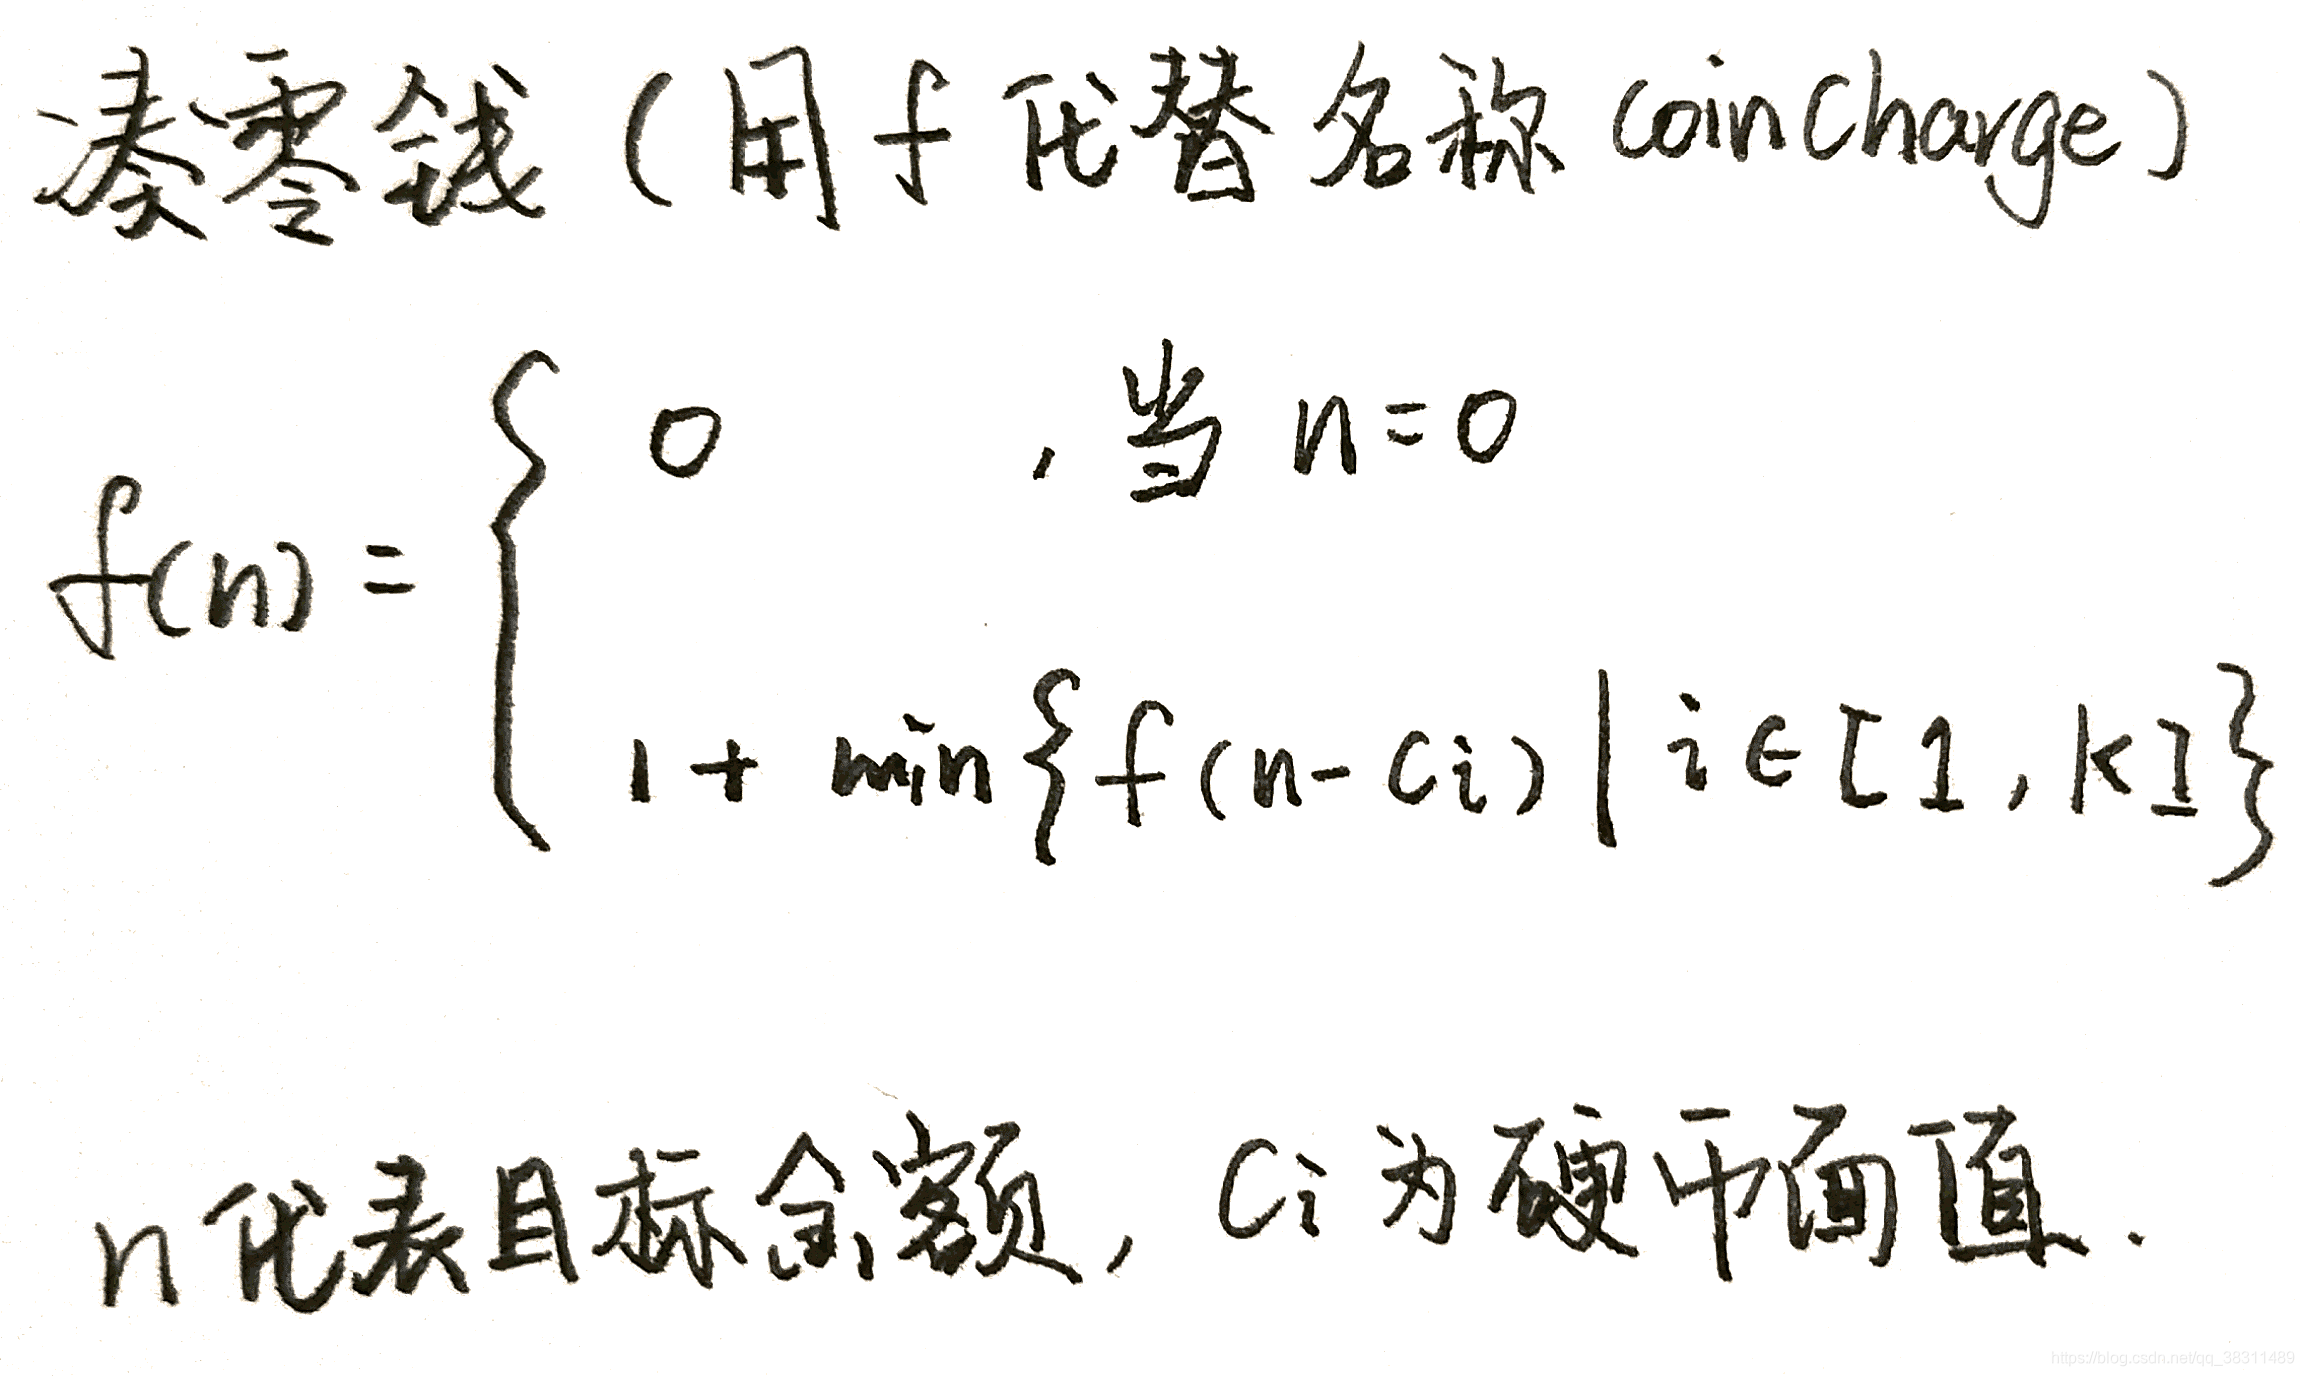 凑零钱(用f代替名称 coinCharge)
0 , 当 n=0
f(n) =
1 + min{f(n-ci) | i∈[1, k]}
n代表目标金额, Ci为硬币面值.
https://blog.csdn.net/qq_38311489